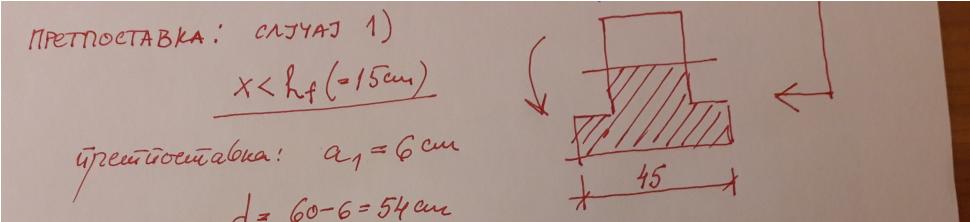 ПРЕТПОСТАВКА: СЛУЧАЈ 1)
x < hf (=15cm)
претпоставка: a1 = 6 cm
d = 60-6 = 54 cm
45